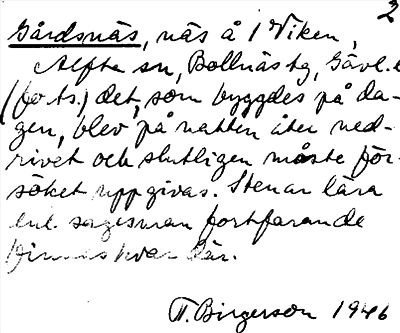 2
Gårdsnäs, näs å 1 Viken,
Alfta sn, Bollnäs tg, Gävl. l
(forts.) det, som byggdes på da-
gen, blev på natten åter ned-
rivet och slutligen måste för-
söket uppgivas. Stenar lära
enl. sagesman fortfarande
finnas kvar där.
T. Birgerson 1946